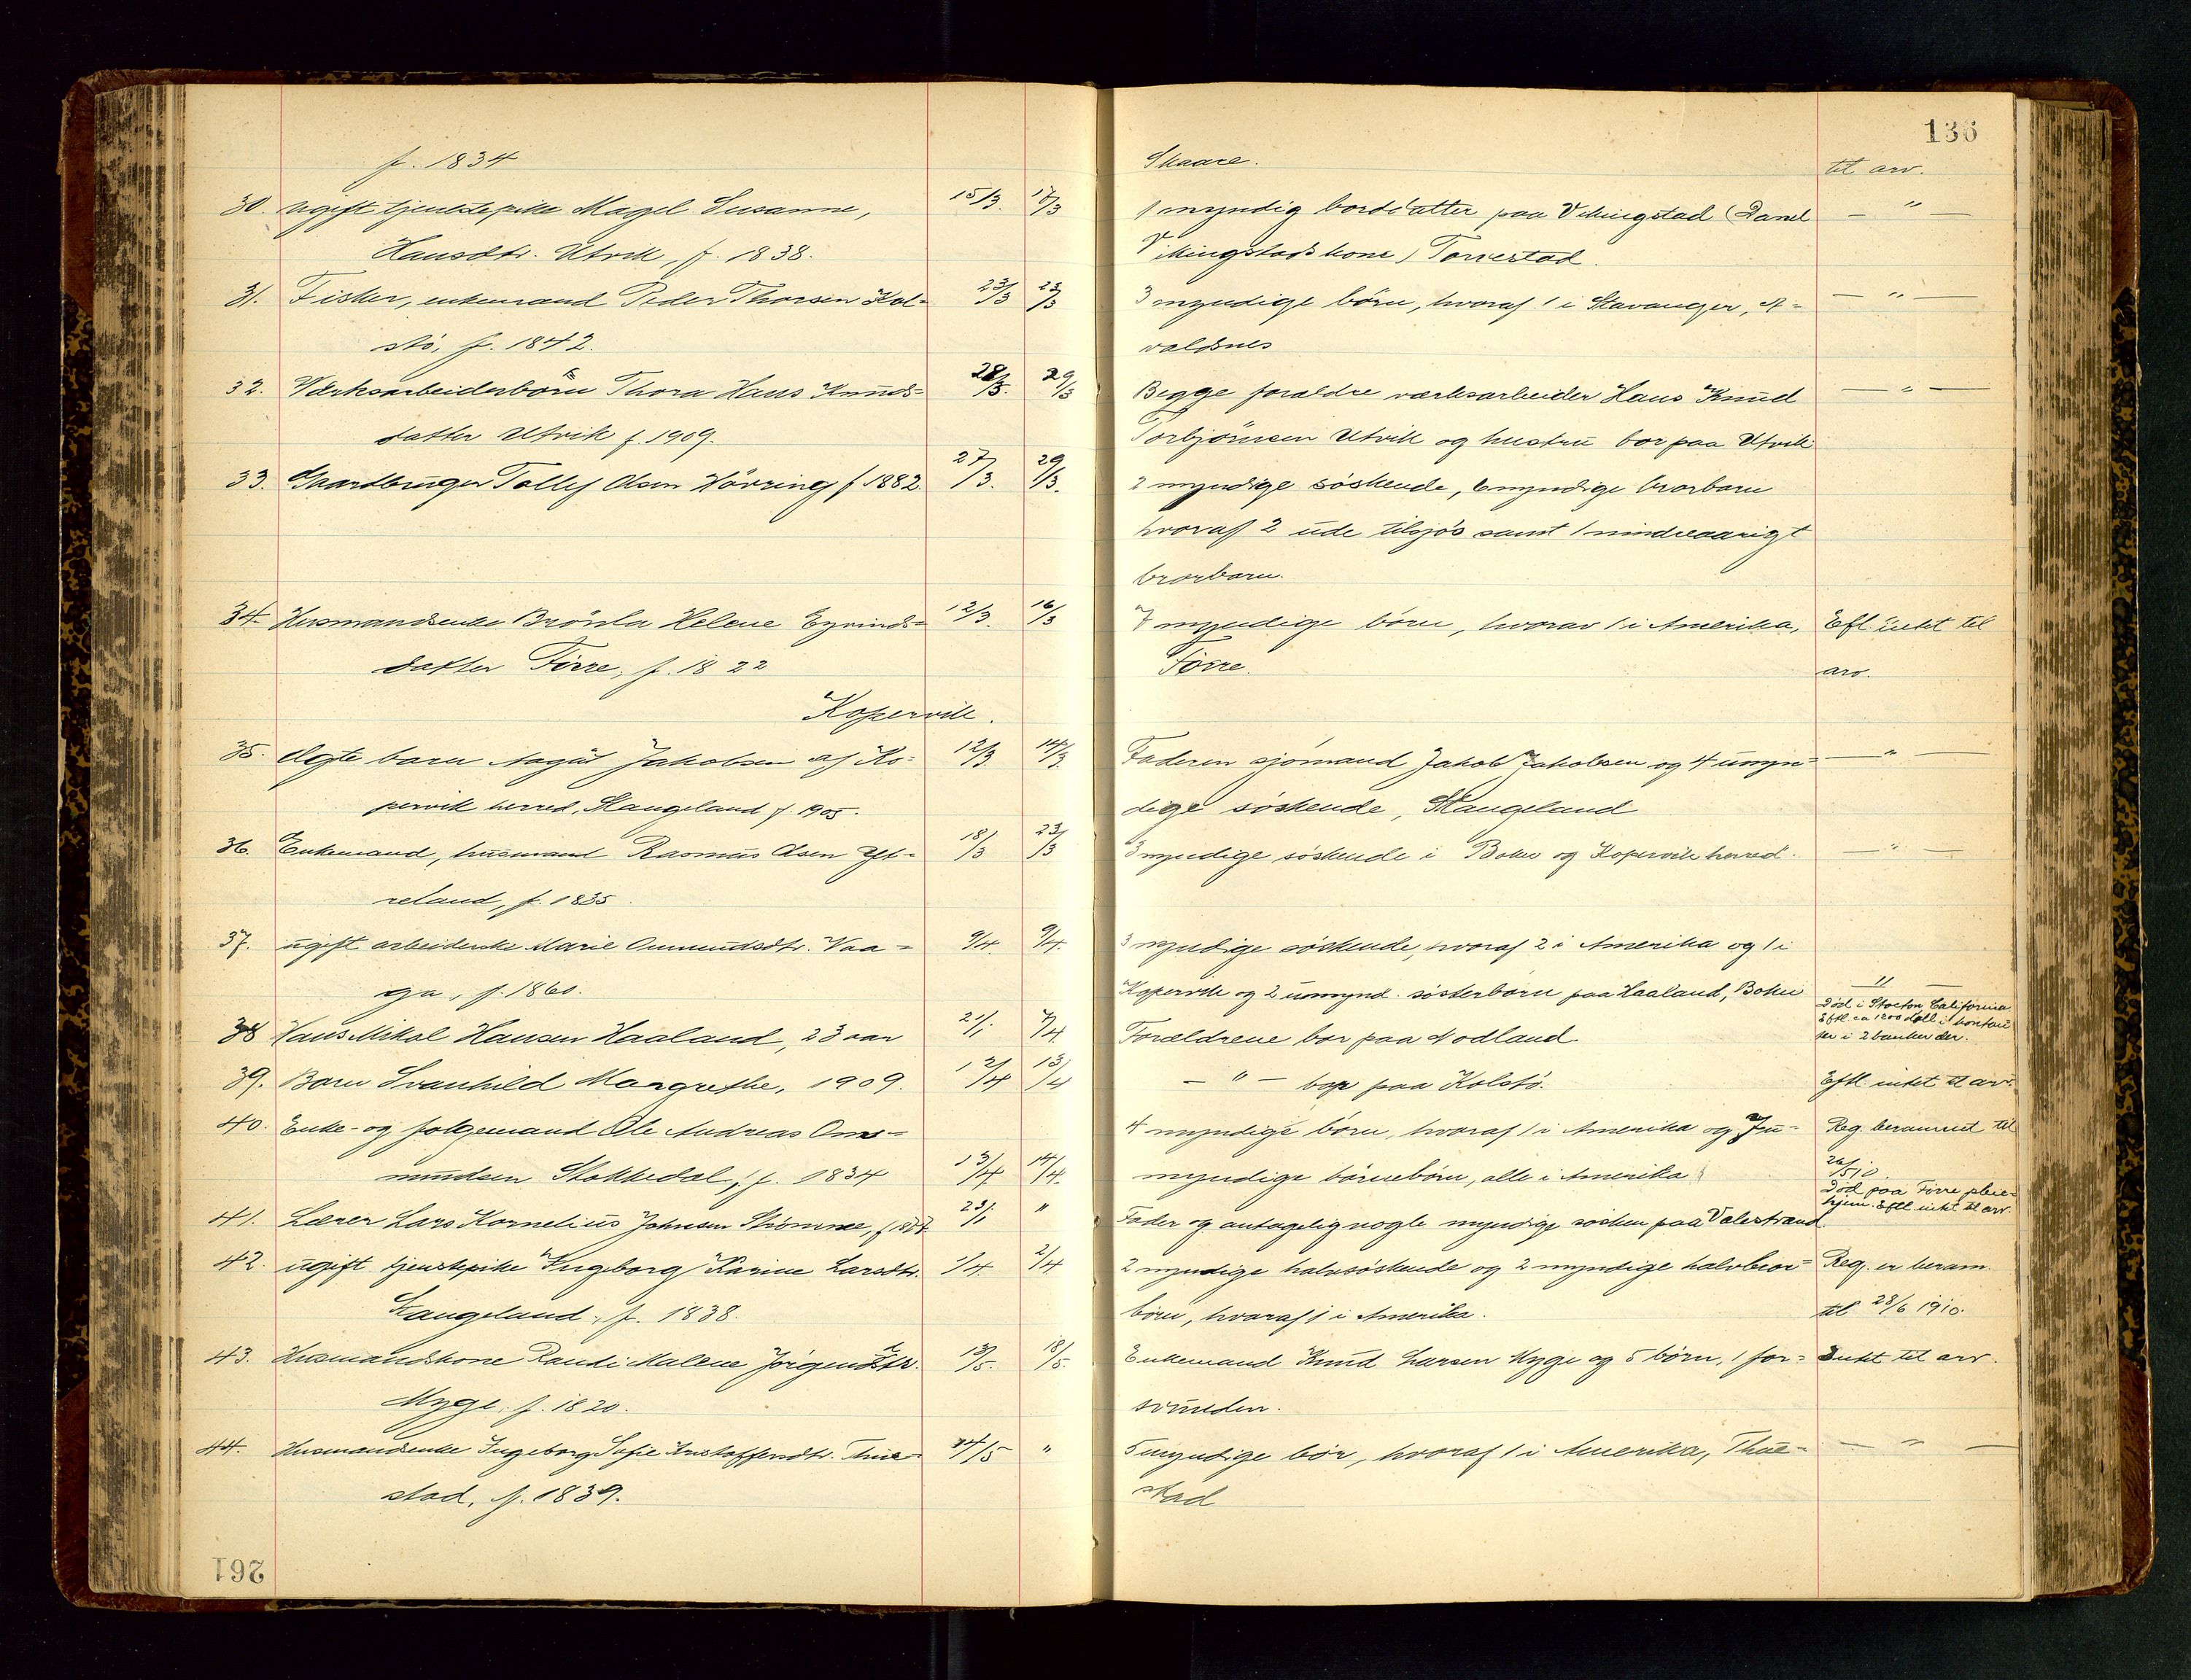 136
f. 1834
Skaare.
til arv.
30. ugift tjenestepike Magel Susanne, 15/3. 17/3
1 myndig bordatter paa Vikingstad (Danel — " —
Hansdtr. Utvik, f. 1838.
Vikingstads kone) Torvestad.
31. Fisker, enkemand Peder Thorsen Kol- 23/3 23/3
3 myndige børn, hvoraf 1 i Stavanger, A- — " —
stø, f. 1842.
valdsnes
32. Værksarbeiderbørn Thora Hans Knuds- 28/3. 29/3
Begge foraldre værksarbeider Hans Knud — " —
datter Utvik f. 1909.
Torbjörnsen Utvik og hustru bor paa Utvik
33. Gaardbruger Tollef Olsen Hövring f 1882. 27/3. 29/3.
2 myndige söskende, 6 myndige brorbarn
hvoraf 2 ude tilsjös samt 1 mindreaarigt
brorbarn.
34. Husmandsenke Brönla Helene Eyvinds- 12/3. 16/3
7 myndige børn, hvorav 1 i Amerika, Efl intet til
datter Förre, f. 1822
Förre. arv.
Kopervik.
35. Ægte barn Aagot Jakobsen af Ko- 12/3. 14/3.
Faderen sjömand Jakob Jakobsen og 4 umyn- — " —
pervik herred, Stangeland f. 1905.
dige söskende, Stangeland
36. Enkemand, husmand Rasmus Olsen Yt- 18/3 23/3
3 myndige söskende i Bokn og Kopervik herred. — " —
reland, f. 1835.
37. ugift arbeiderske Marie Ommundsdtr. Vaa- 9/4. 9/4.
3 myndige söskende, hvoraf 2 i Amerika og 1 i
ga, f. 1860.
Kopervik og 2 umynd. sösterbørn paa Haaland, Bokn — " —
Död i Stocton California
Eftl ca 1200 doll i kontan
ter i 2 banker der.
38 Hans Mikal Hansen Haaland, 23 aar 21/1. 7/4
Foraldrene bor paa Nodland.
39. Barn Svanhild Margrethe, 1909. 12/4 13/4
— " — bor paa Kolstö. Eftl. intet til arv.
40. Enke- og folgemand Ole Andreas Om-
4 myndige børn, hvoraf 1 i Amerika og 7 u- Reg. berammet til
mundsen Stokkedal, f. 1834 13/4 14/4.
myndige börnebörn, alle i Amerika 26/5 10
Död paa Förre pleie-
hjem. Eftl intet til arv.
41. Lærer Lars Kornelius Johnsen Strömme, f 1857 23/1 "
Fader og antagelig nogle myndige sösken paa Valestrand.
42. ugift tjenstepike Ingeborg Karine Larsdtr. 1/4. 2/4
2 myndige halvsöskende og 2 myndige halvbror- Reg. er beram.
Stangeland, f. 1838.
börn, hvoraf 1 i Amerika. til 28/6 1910.
43. Husmandskone Randi Malene Jörgensdtr. 13/5. 18/5.
Enkemand Knud Larsen Myge og 5 börn, 1 for- Intet til arv.
Myge, f. 1820.
svunden.
44. Husmandsenke Ingeborg Sofie Kristoffersdtr. Thue- 14/5 "
5 myndige bör, hvoraf 1 i Amerika, Thue- — " —
stad, f. 1839.
stad
261